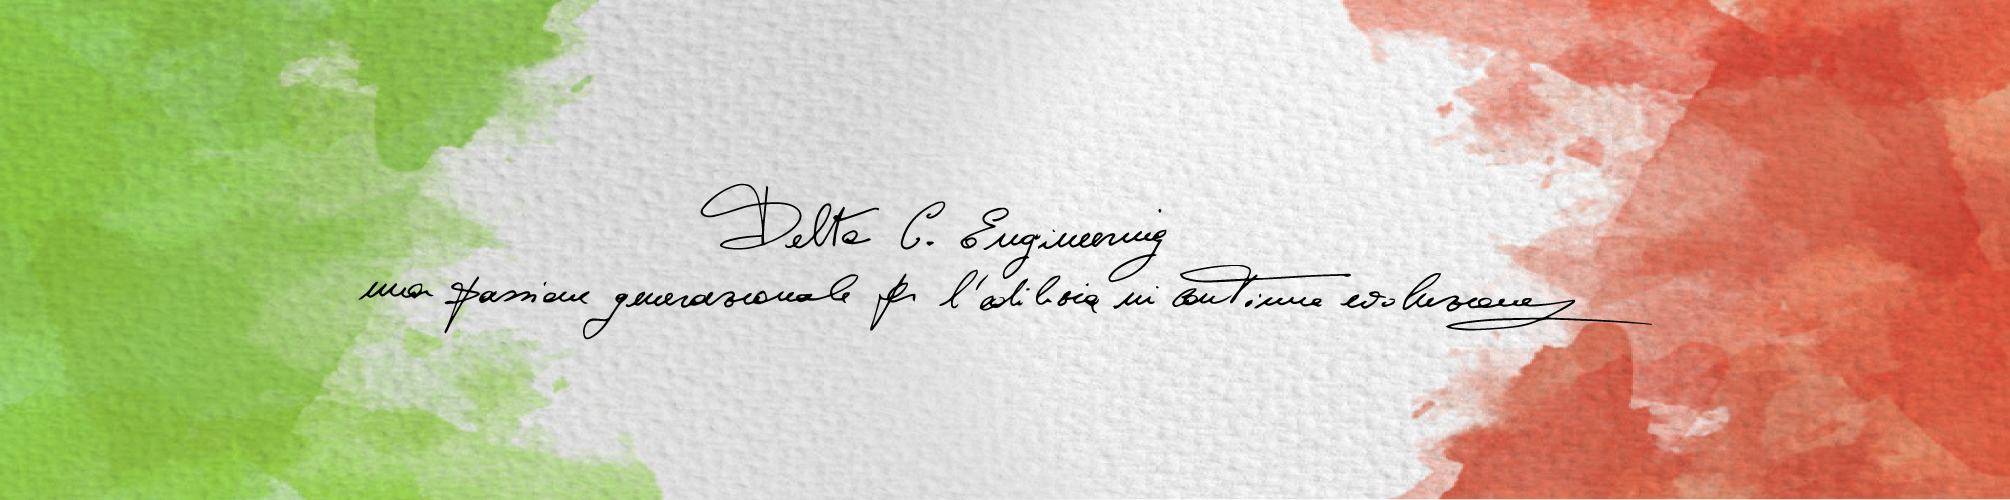 Delta C. Engineering
una passione generazionale per l'edilizia in continua evoluzione